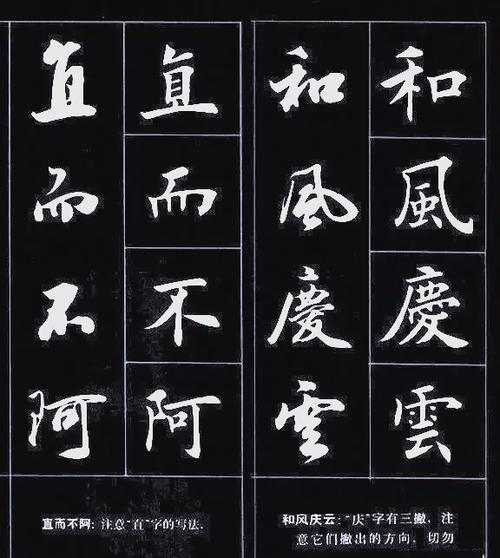 和風慶雲
和風慶雲
和风庆云:“庆”字有三撇,注
意它们撇出的方向,切勿
直而不阿
直而不阿
直而不阿:注意“直”字的写法.